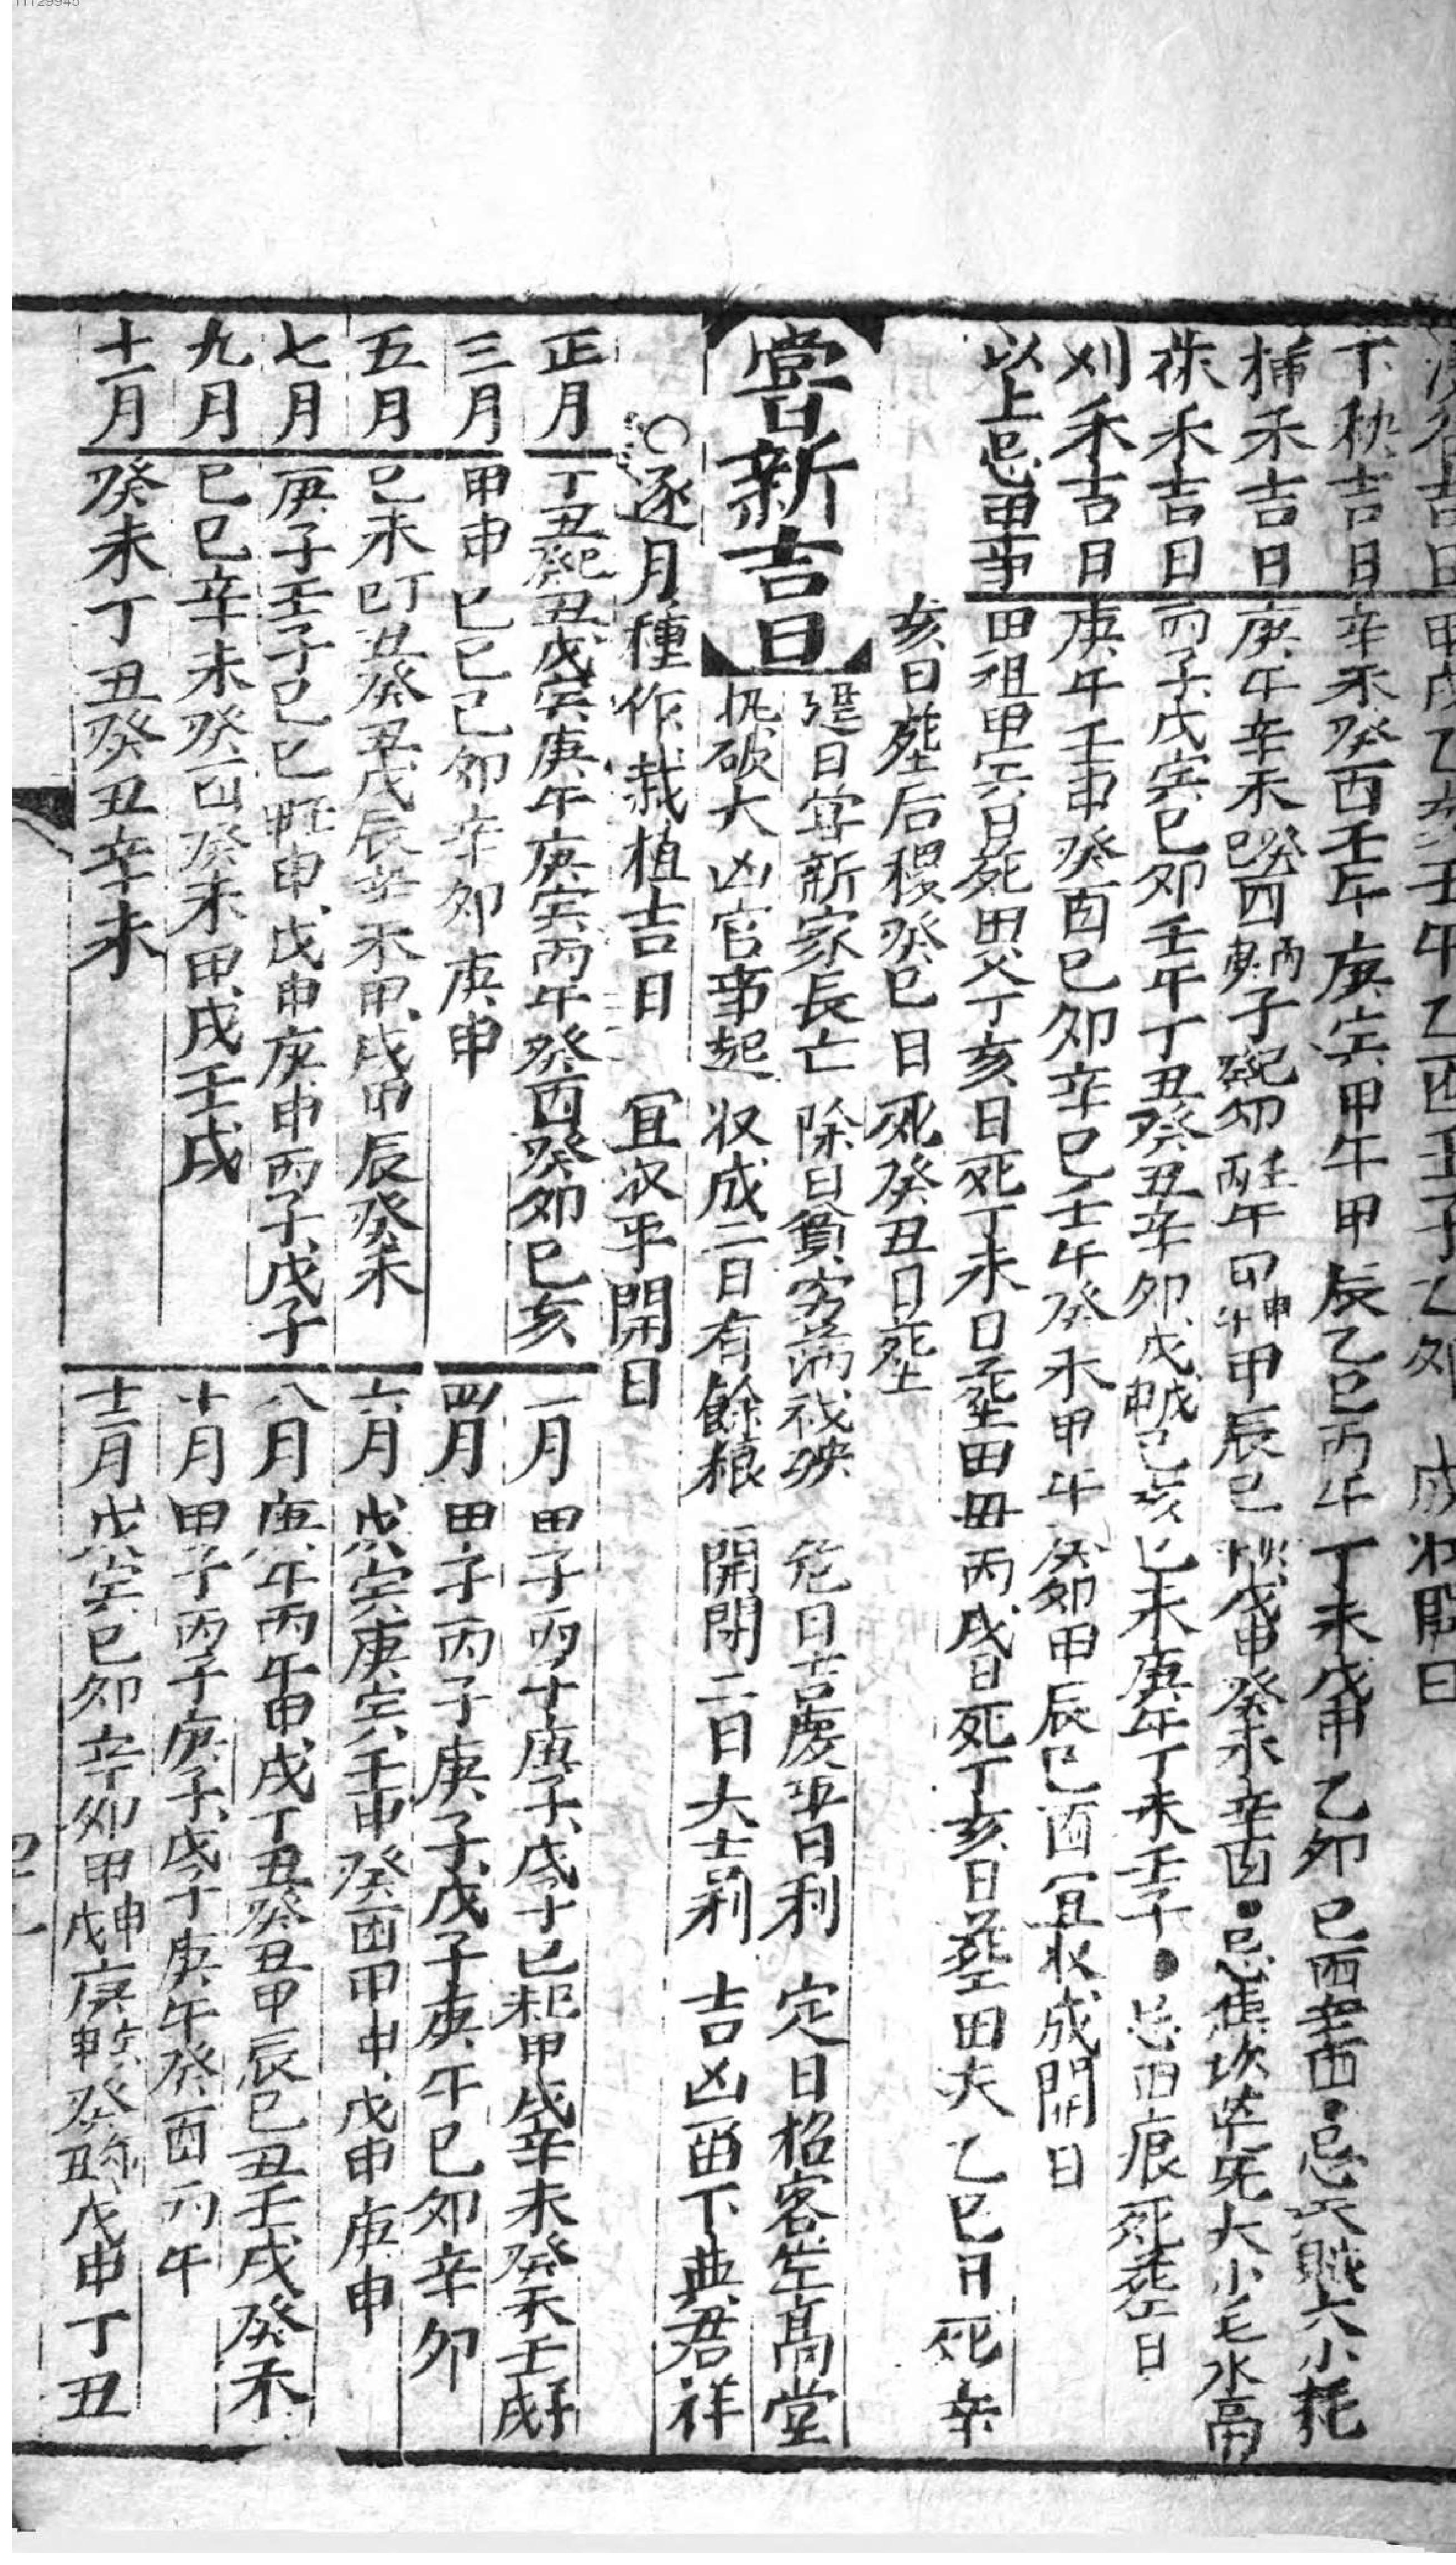 11129945
吉日甲戌乙亥壬午乙酉壬子乙卯 成收開日
下秧吉日辛未癸酉壬午庚寅甲午甲辰乙巳丙午丁未戊申乙卯己酉辛酉●忌天賊大小耗
插禾吉日庚午辛未癸酉丙子庚子癸卯壬午丙午甲申甲辰己戊申癸未辛酉●忌焦坎大小毛水鬲
禾吉日丙子戊寅己卯壬午丁丑癸丑辛卯戊戌己亥己未庚午丁未壬子●忌田痕死塟日
刈禾吉日庚午壬申癸酉己卯辛巳壬午癸未甲午癸卯甲辰己酉宜收成開日
以上忌田事田祖甲寅日死田父丁亥日死丁未日塟田毋丙戌日死丁亥日塟田夫乙巳日死辛
亥日塟后稷癸巳日死癸丑日塟
嘗新吉日
建日甞新家長亡 除日貧窮 殃 危日吉慶平日利 定日招客坐高堂
執破大凶官事起 收成二日有餘粮 開閉二日大吉利 吉凶 下與君祥
○逐月種作栽植吉日 宜收平開日
正月 丁丑癸丑戊寅庚午庚寅丙午癸酉癸卯己亥
二月 甲子丙午庚子戊子己 甲戌辛未癸未壬戌
三月 甲申己巳己卯辛卯庚申
四月 甲子丙子庚子戊子庚午己卯辛卯
五月 己未丁丑癸丑戊辰辛未甲戌甲辰癸未
六月 戊寅庚寅壬申癸酉甲申戊申庚申
七月 庚子壬子己巳 申戊申庚申丙子戊子
八月 庚午丙午甲戌丁丑癸丑甲辰己丑壬戌癸未
九月 己巳辛未癸酉癸未甲戌壬戌
十月 甲子丙子庚子戊子庚午癸酉丙午
十一月 癸未丁丑癸丑辛未
十二月 戊寅己卯辛卯甲申甲戌庚寅庚申癸卯癸丑戊申丁丑